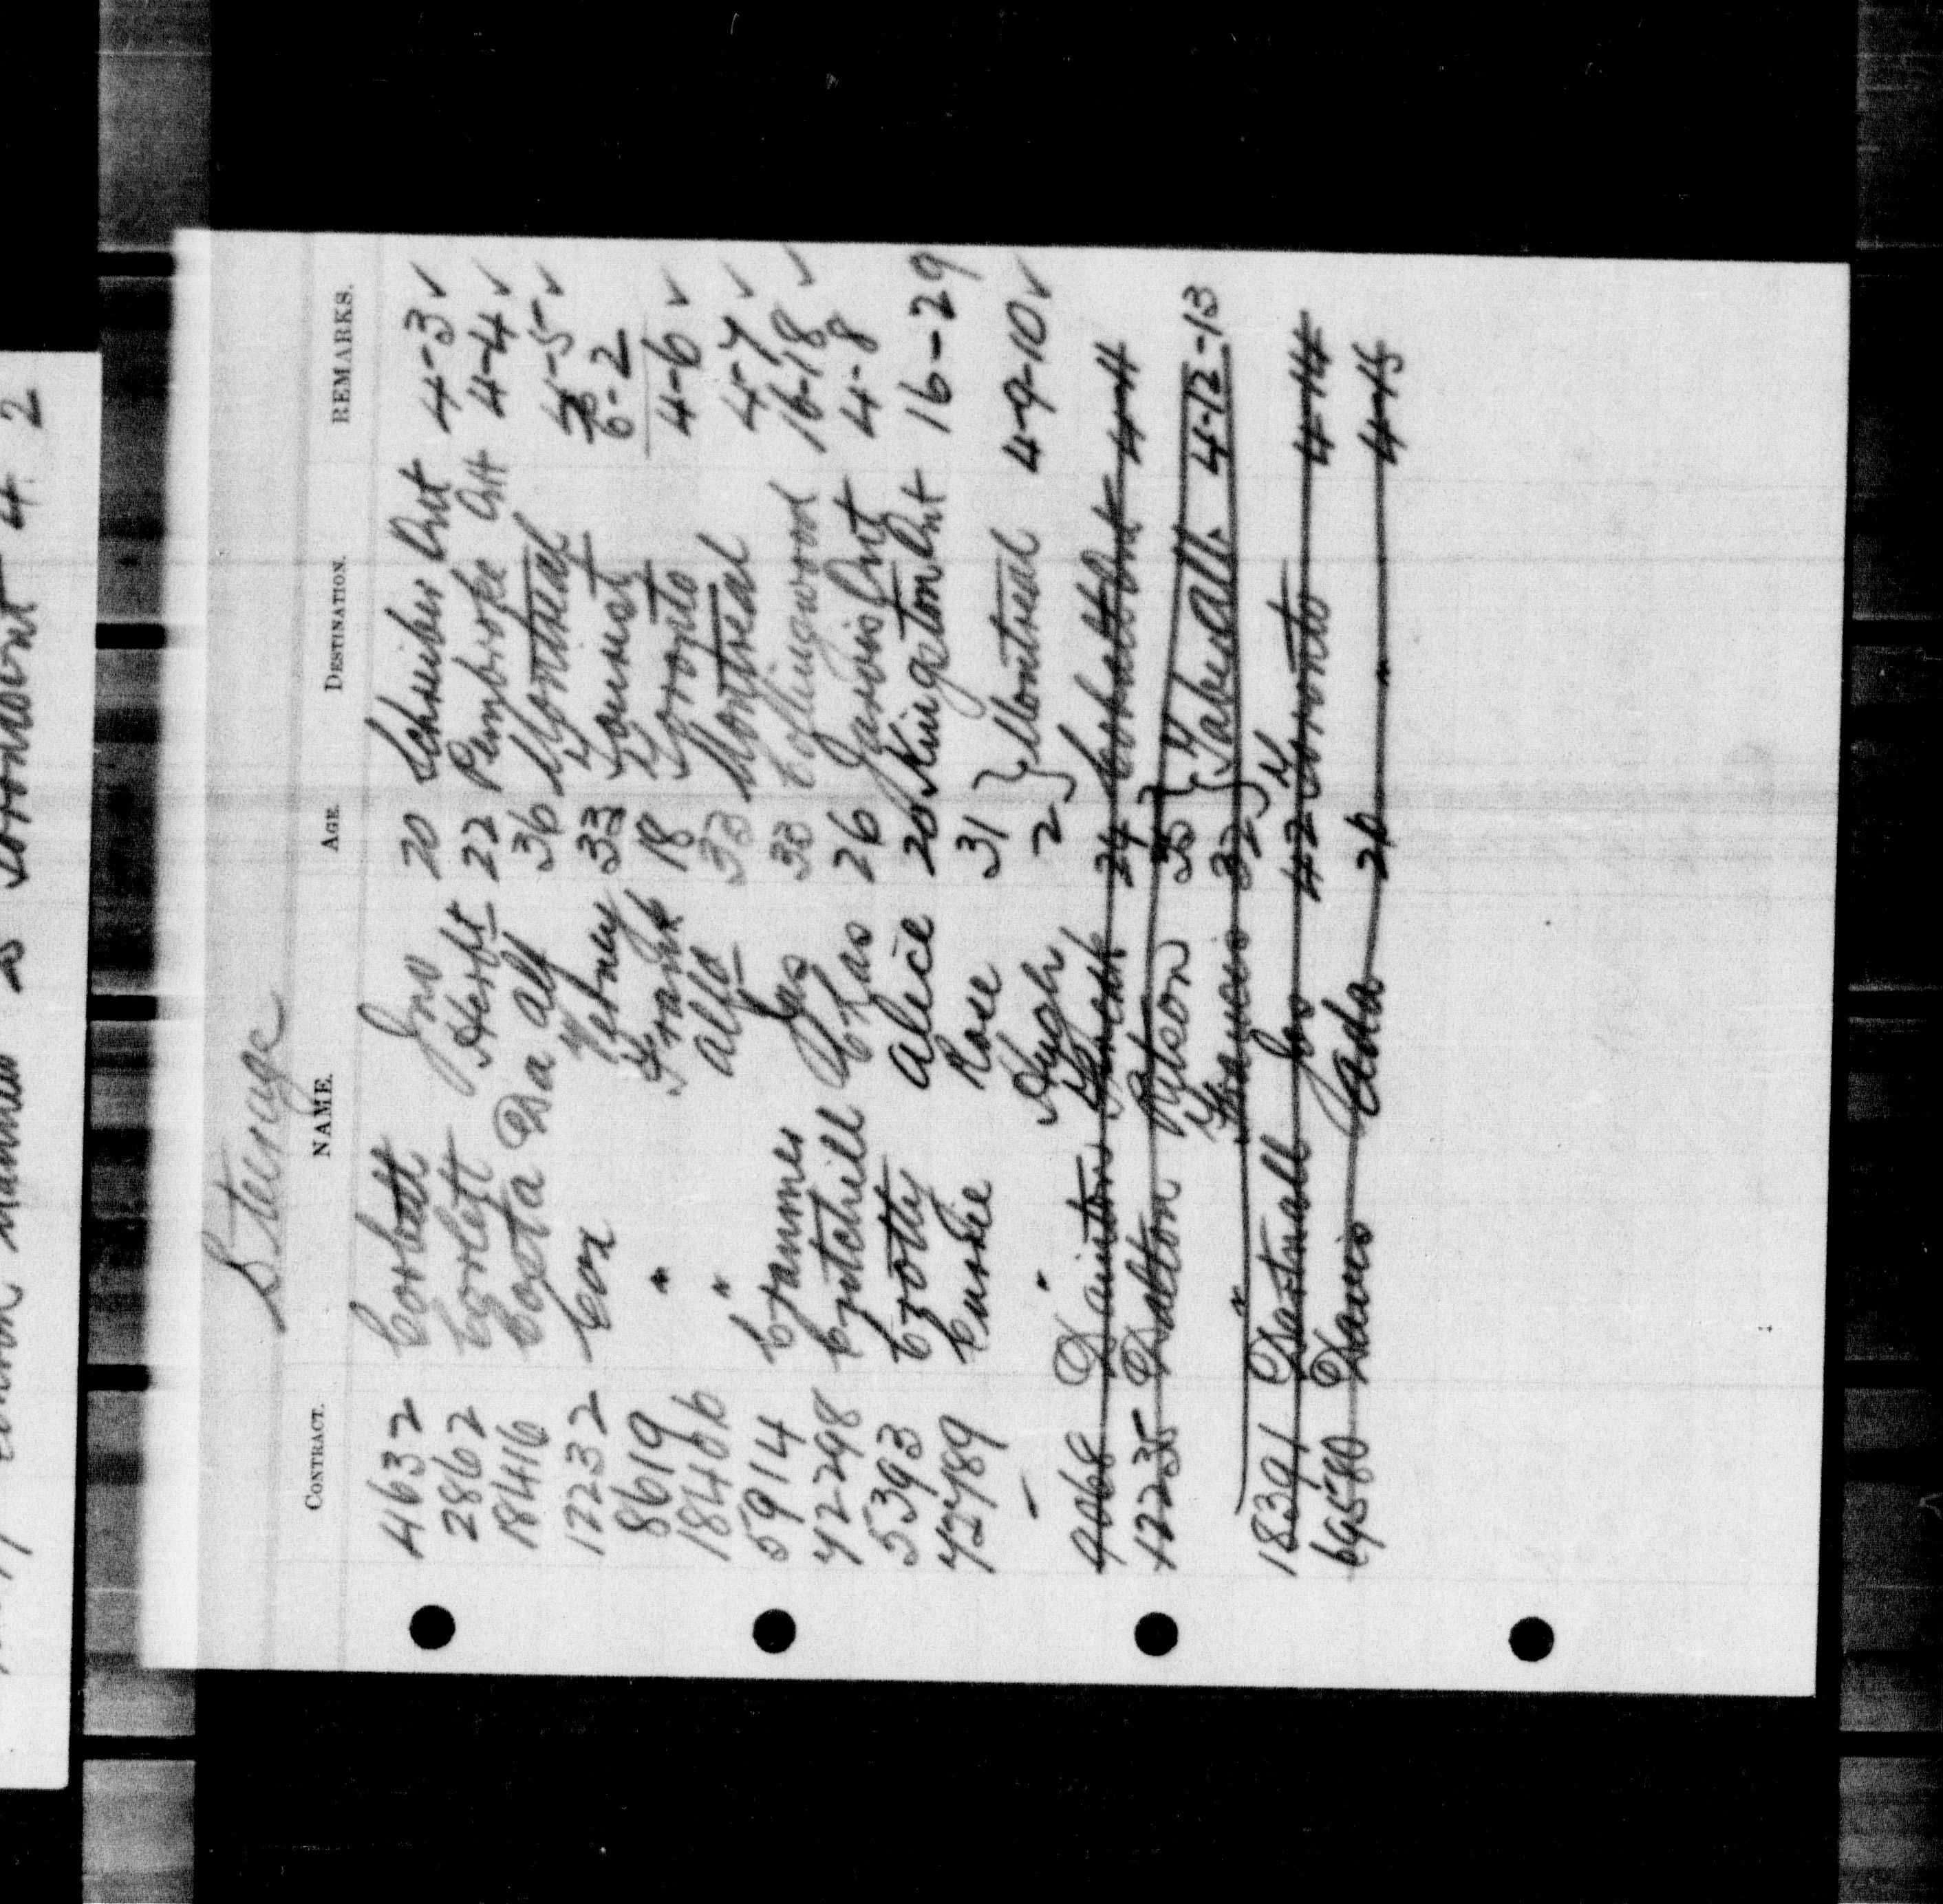 Steerage
CONTRACT. NAME. AGE DESTINATION. REMARKS.
4632 Corbett Jno 20 Schreiber Ont 4-3 ✓
2862 Corlett Herbt 22 Pembroke Ont 4-4 ✓
18416 Costa Da Alf 36 Montreal 4-5 ✓
12232 Cox Henry 33 Tourist 6-2
8619 " Frank 18 Toronto 4-6 ✓
18406 " Alfd 33 Montreal 4-7 ✓
5914 Cranmer Jas 33 Collingwood 16-18 ✓
72298 Crutchill Chas 26 Jarvis Ont 4-8
5393 Crotty Alice 20 Kingston Ont 16-29
72789 Cuskee Rose 31 } Montreal 4-9-10 ✓
— " Hugh 2
9068 Dainton 24 Cobalt Ont 4-11
12235 Dalton 35 } Taber Alb. 4-12-13
" Frances 32
18391 Dartnall Jas 42 Toronto 4-14
69580 Davis Ada 26 " 4-15